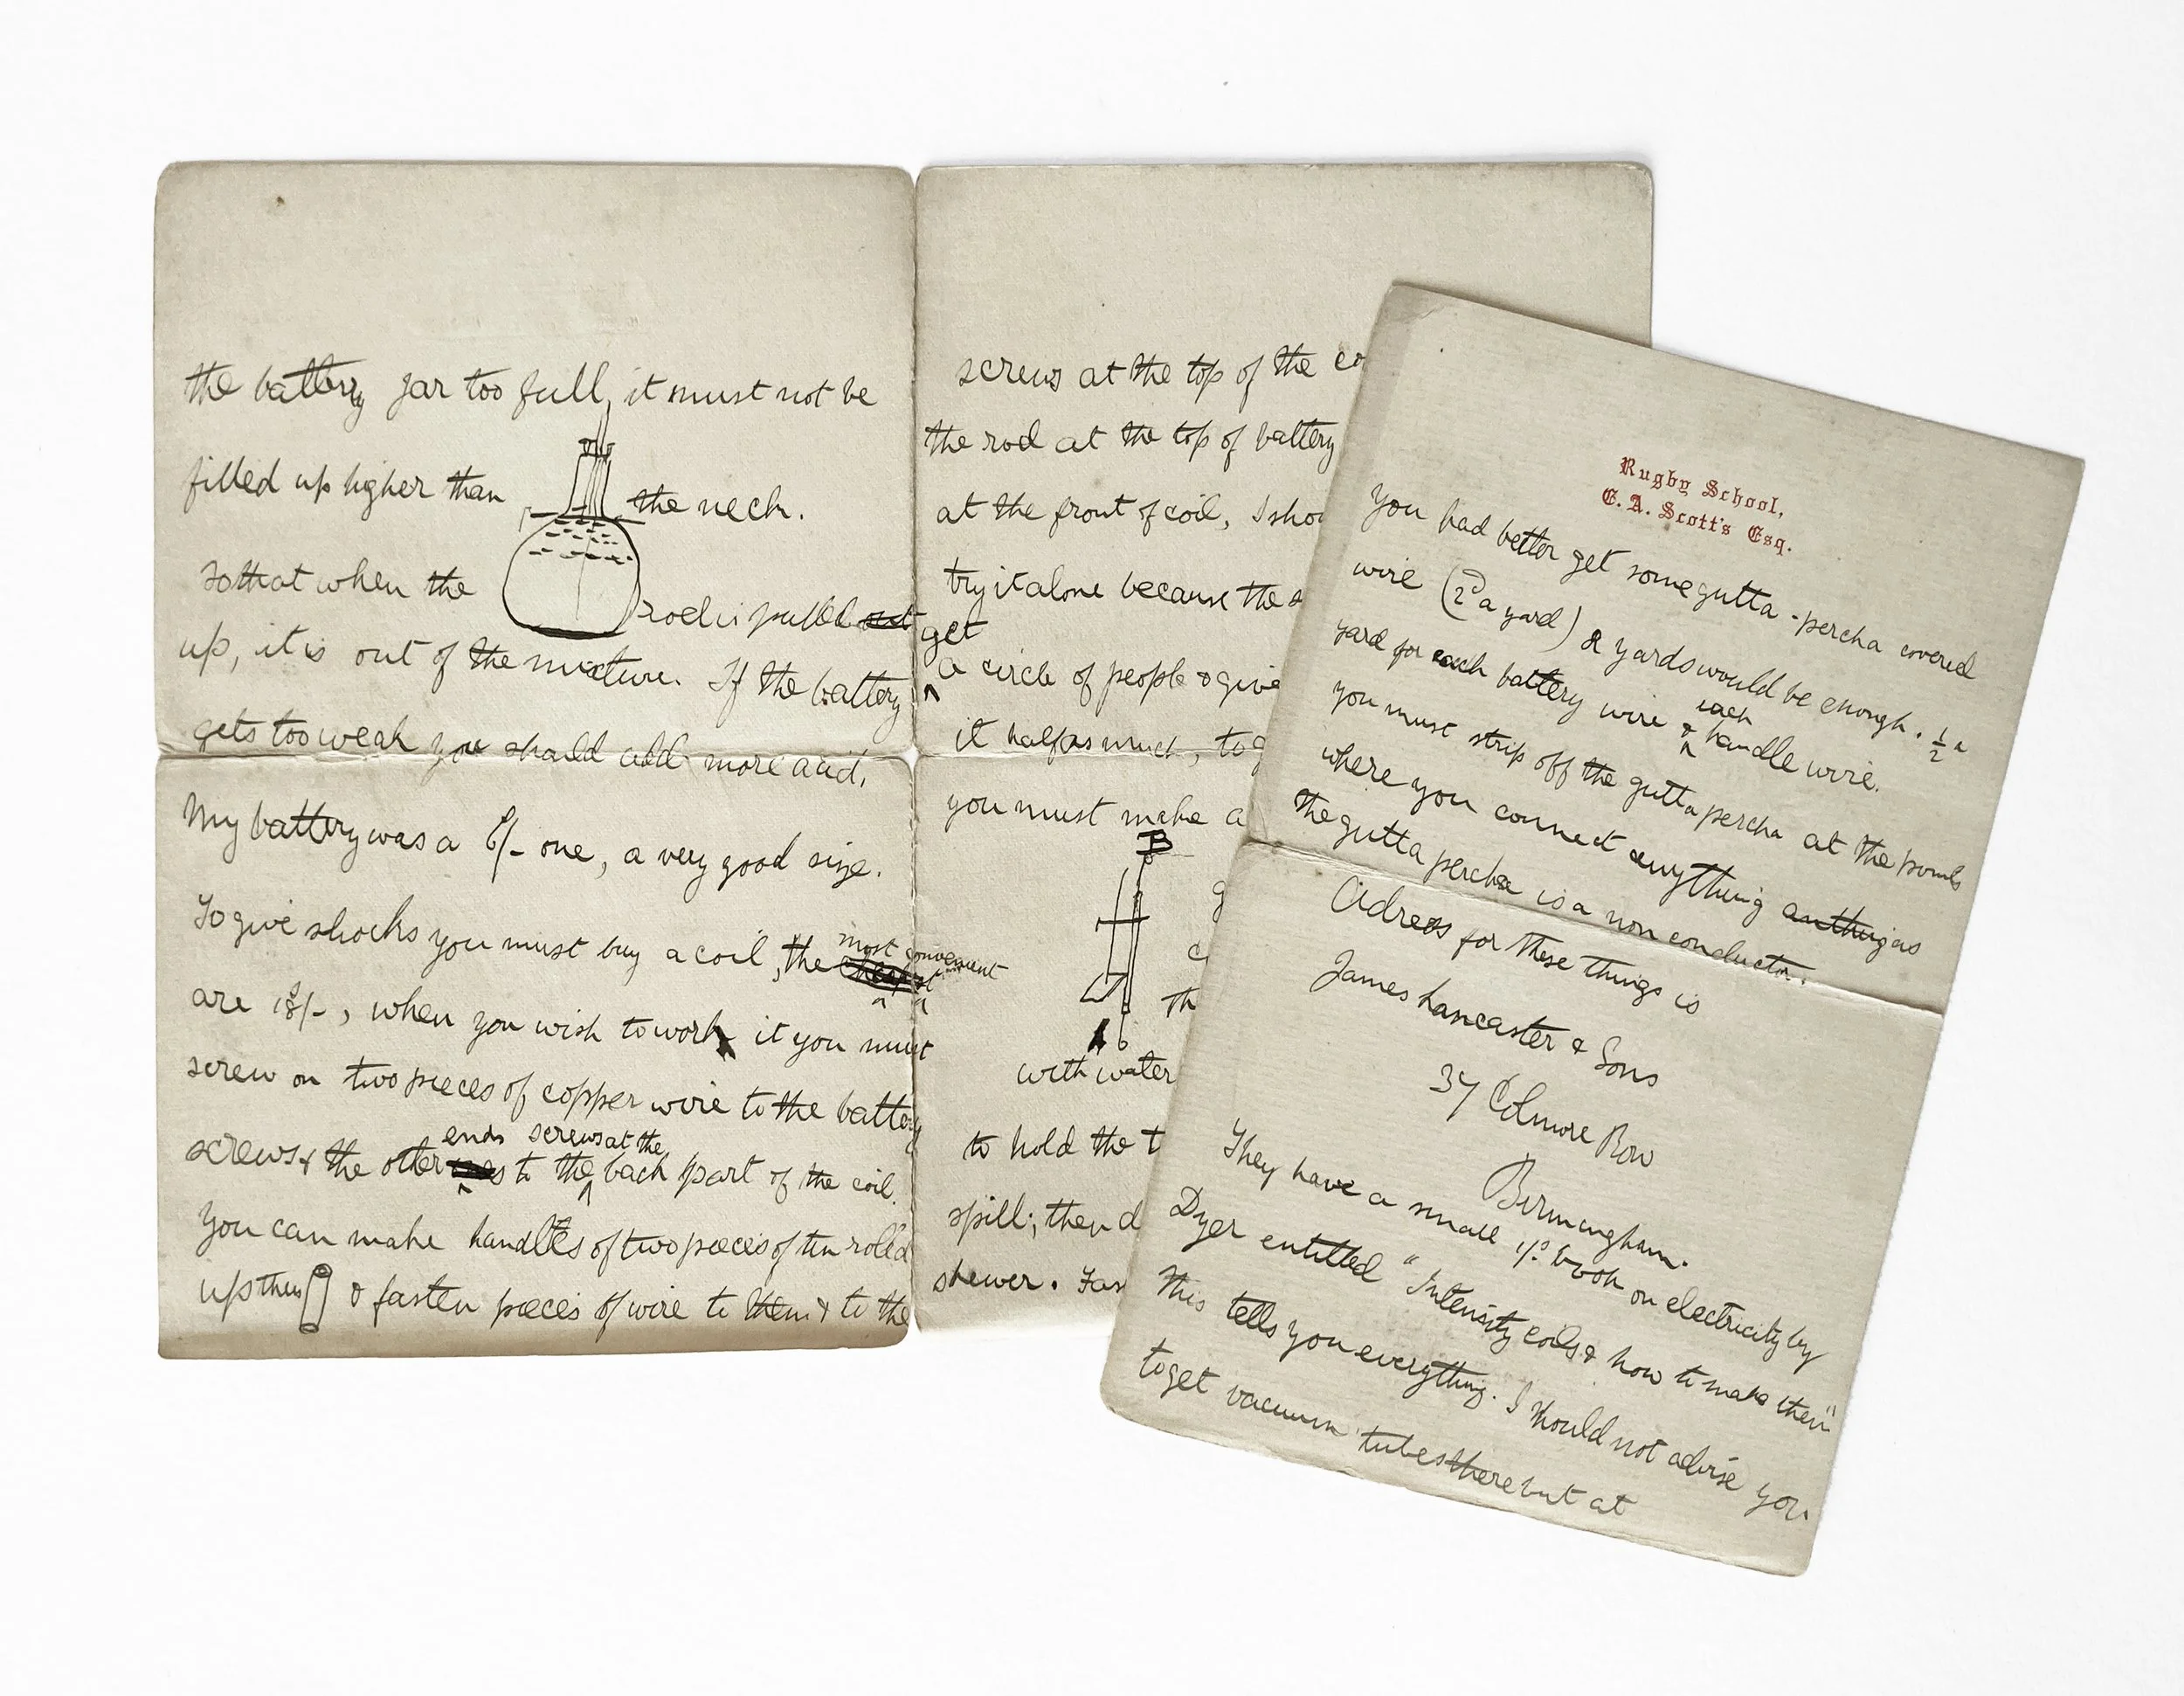 the battery jar too full, it must not be
filled up higher than the neck.
so that when the rod is pulled out
up, it is out of the mixture. If the battery
gets too weak you should add more acid.
My battery was a 6/- one, a very good size.
To give shocks you must buy a coil, the most convenient
are 18/-, when you wish to work it you must
screw on two pieces of copper wire to the battery
screws & the other ends to the screws at the back part of the coil.
You can make handles of two pieces of tin rolled
up thus & fasten pieces of wire to them & to the
screws at the top of the co
the rod at the top of battery
at the front of coil, I shou
try it alone because the s
get
a circle of people & give
it half as much, tog
you must make a
B
g
c
th
A
with water
to hold the t
spill; then d
shewer. Fas
Rugby School,
E. A. Scott's Esq.
You had better get some gutta-percha covered
wire (2D a yard) 2 yards would be enough. ½ a
yard for each battery wire & each handle wire.
you must strip off the gutta percha at the points
where you connect anything anthing as
the gutta percha is a non conductor.
Adress for these things is
James Lancaster & Sons
37 Colmore Row
Birmingham.
They have a small 1/- book on electricity by
Dyer entitled "Intensity coils & how to make them"
This tells you everything. I should not advise you
to get vacuum tubes there but at